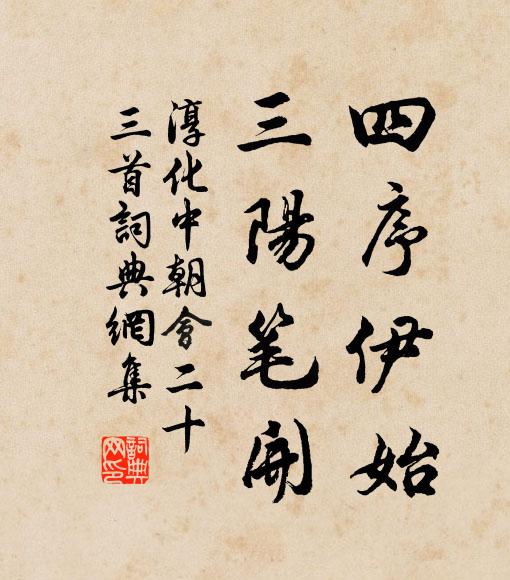 四序伊始
三陽笔開
淳化中朝會二十
三首詞典網集
詞典
网印